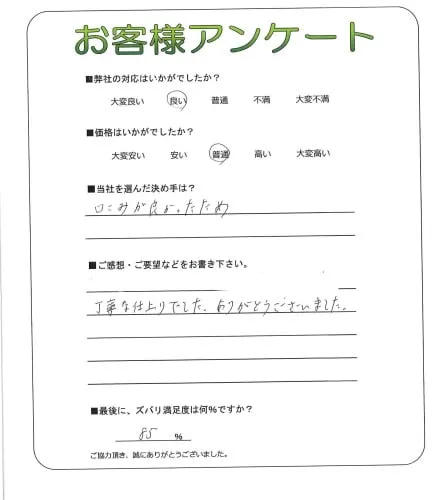 お客様アンケート
■弊社の対応はいかがでしたか？
大変良い 良い 普通 不満 大変不満
■価格はいかがでしたか？
大変安い 安い 普通 高い 大変高い
■当社を選んだ決め手は？
口こみが良かったため
■ご感想・ご要望などをお書き下さい。
丁寧な仕上りでした、ありがとうございました。
■最後に、ズバリ満足度は何%ですか？
85 %
ご協力頂き、誠にありがとうございました。